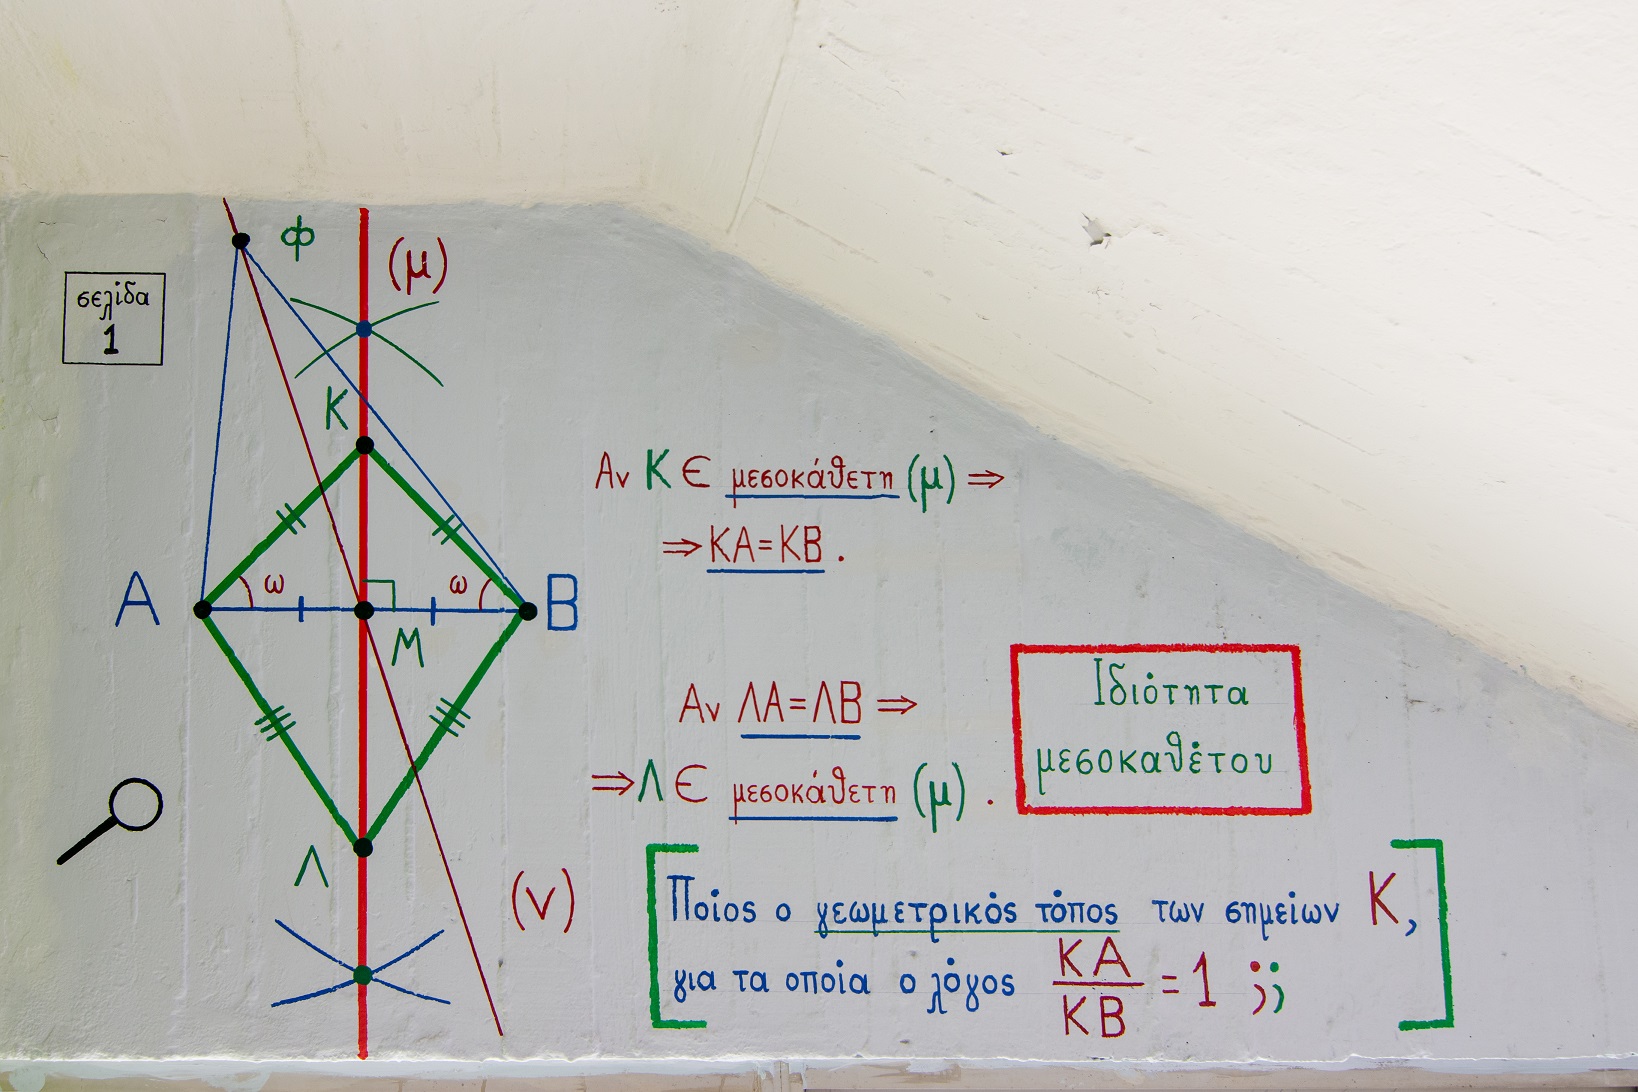 σελίδα
1
φ
(μ)
K
A
ω
ω
B
M
Λ
(ν)
Αν K ∈ μεσοκάθετη (μ) ⇒
⇒ KA=KB .
Αν ΛΑ=ΛΒ ⇒
⇒ Λ ∈ μεσοκάθετη (μ) .
Ιδιότητα
μεσοκαθέτου
Ποίος ο γεωμετρικός τόπος των σημείων K,
για τα οποία ο λόγος KA/KB = 1 ;;